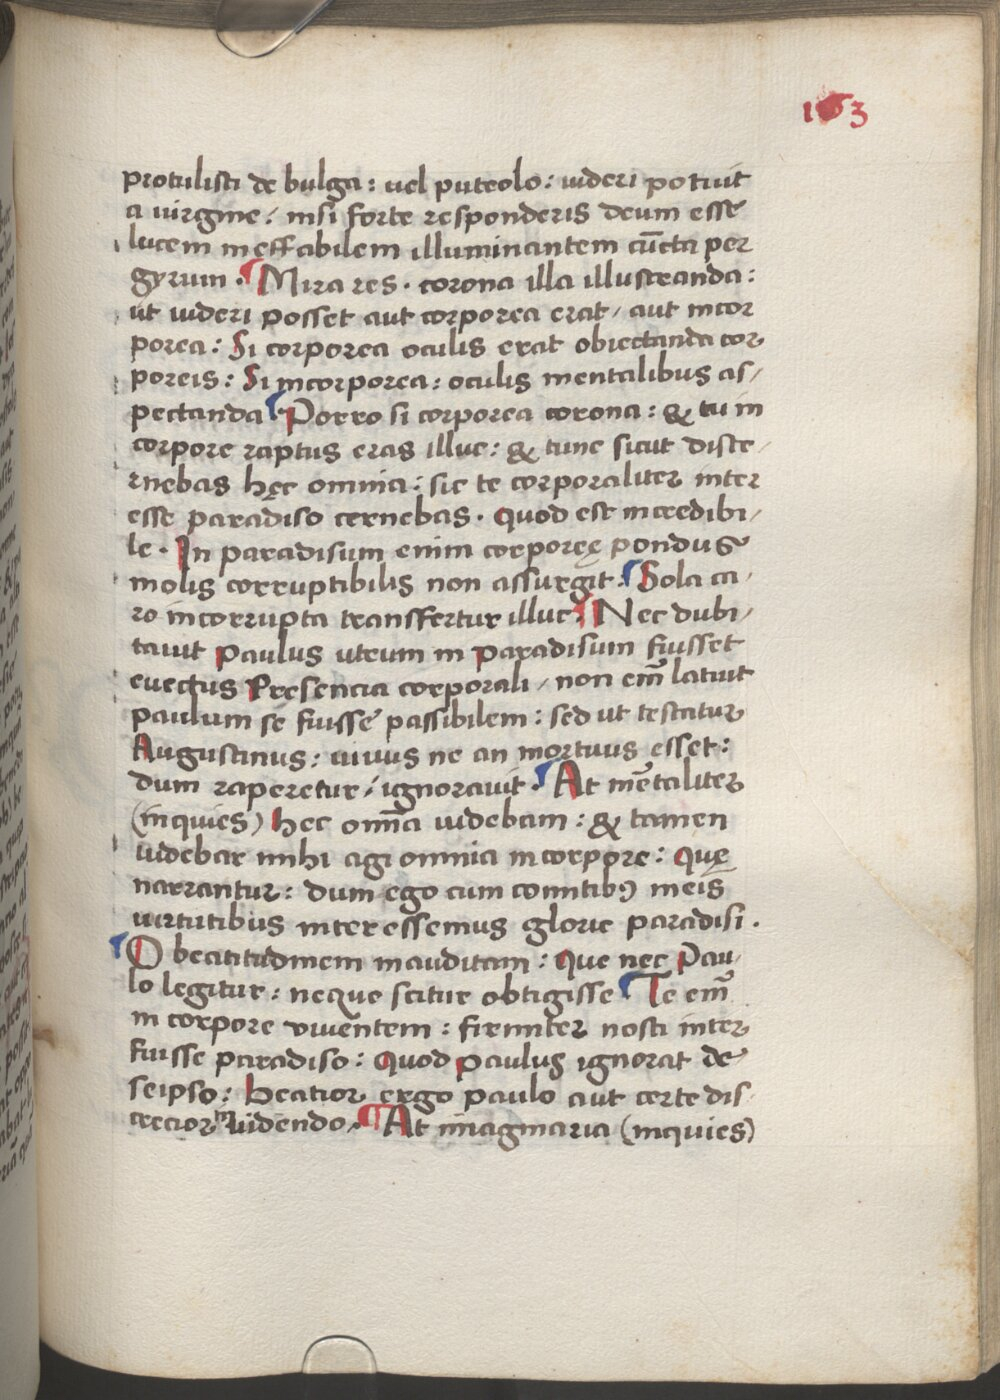 163
protulisti de bulga: uel puteolo: uideri potuit
a uirgine: nisi forte responderis deum esse
lucem ineffabilem illuminantem cūcta per
gyrum. Mira res. corona illa illustranda:
ut uideri posset aut corporea erat / aut incor
porea: Si corporea oculis erat obiectanda cor
poreis: Si incorporea: oculis mentalibus as/
pectanda Porro si corporea corona: & tu in
corpore raptus eras illuc: & tunc sicut disce/
rnebas hęc omnia: sic te corporaliter inter
esse paradiso cernebas. Quod est incredibi/
le. In paradisum enim corporeę pondus
molis corruptibilis non assurgit. Sola ca/
ro incorrupta transffertur illuc Nec dubi/
tauit paulus utrum in paradisum fuisset
euectus presencia corporali / non em̄ latuit
paulum se fuisse passibilem: sed ut testatur
Augustinus: uiuus ne an mortuus esset:
dum raperetur / ignorauit. At mētaliter
(inquies) hec om̄ia uidebam: & tamen
uidebar mihi agi omnia in corpore: Quę
narrantur: dum ego cum comitibꝰ meis
uirtutibus interessemus glorie paradisi.
O beatitudinem inauditam: Que nec Pau/
lo legitur: neque scitur obtigisse Te em̄
in corpore viuentem: firmiter nosti inter
fuisse paradiso: Quod paulus ignorat de
seipso: Beatior ergo paulo aut certe dis/
cretior in uidendo. At imaginaria (inquies)